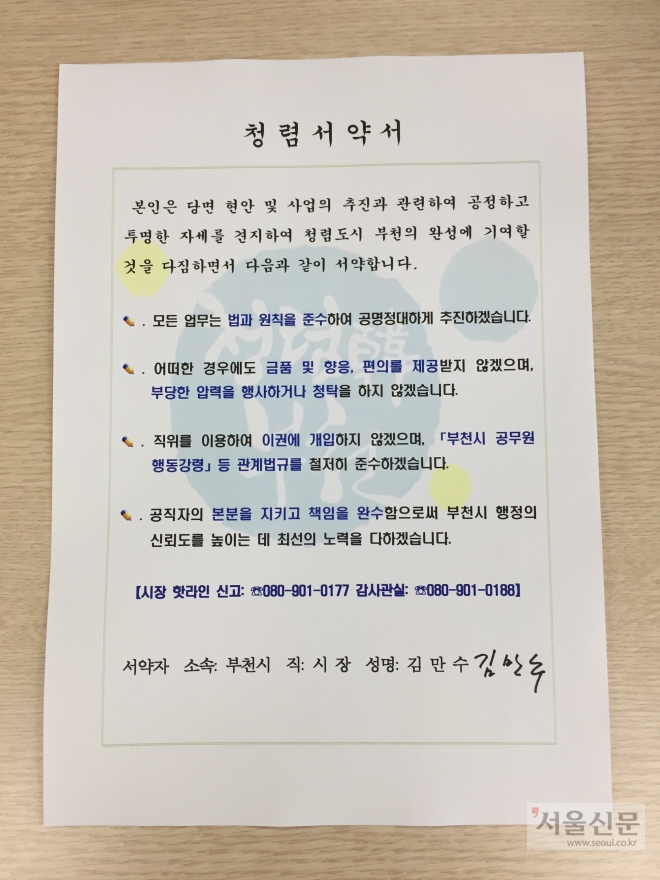 청렴서약서
본인은 당면 현안 및 사업의 추진과 관련하여 공정하고
투명한 자세를 견지하여 청렴도시 부천의 완성에 기여할
것을 다짐하면서 다음과 같이 서약합니다.
. 모든 업무는 법과 원칙을 준수하여 공명정대하게 추진하겠습니다.
. 어떠한 경우에도 금품 및 향응, 편의를 제공받지 않겠으며,
부당한 압력을 행사하거나 청탁을 하지 않겠습니다.
. 직위를 이용하여 이권에 개입하지 않겠으며, 「부천시 공무원
행동강령」 등 관계법규를 철저히 준수하겠습니다.
. 공직자의 본분을 지키고 책임을 완수함으로써 부천시 행정의
신뢰도를 높이는 데 최선의 노력을 다하겠습니다.
[시장 핫라인 신고: ☏080-901-0177 감사관실: ☏080-901-0188]
서약자 소속: 부천시 직: 시 장 성명: 김 만 수 김만수
서울신문
www.seoul.co.kr